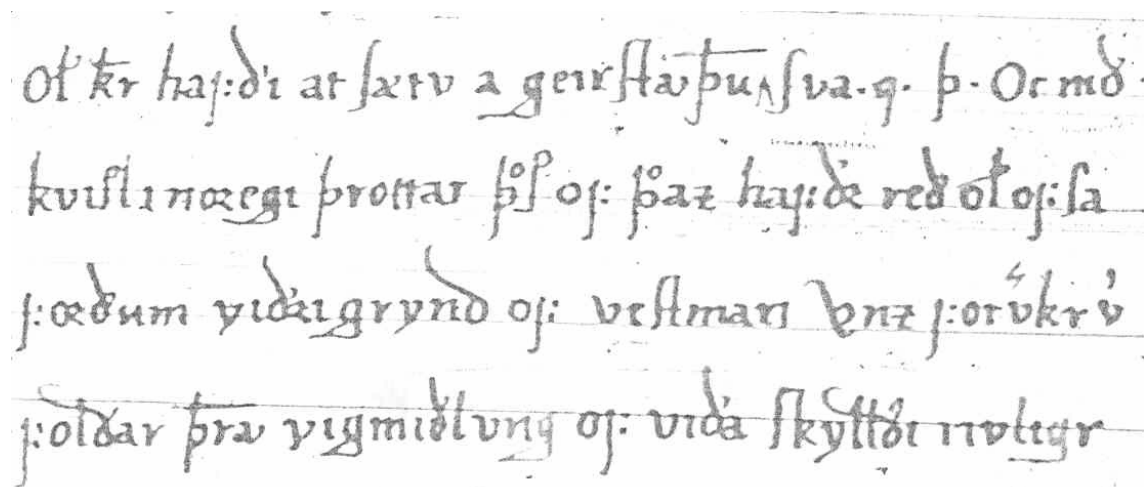 Ol̵ k̅r haꝼ̇ði at ſætv a geirſtꜹþu̅ ſva.q. þ. Oc mð
kviſl i nœregi þrottar þ°ſ oꝼ̇ þ°az haꝼ̇ðe reð ol̵ oꝼ̇ ſa
ꝼ̇œðum viðai grynd oꝼ̇ veſtman vnz ꝼ̇otv́kr v̓
ꝼ̇oldar þrꜹ̅ vigmiðlvng oꝼ̇ viða ſkylldi nv ligr